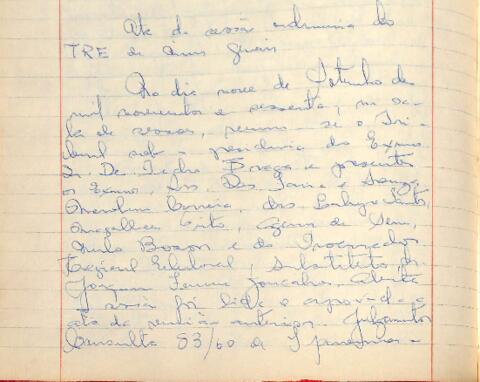 Ata da sessão ordinaria do
TRE de Minas Gerais
No dia nove de Setembro de
mil novecentos e sessenta, na sa-
la de sessões, reuniu-se o Tri-
bunal sob a presidencia do Exmo.
Sr. Des. Braga e presentes
os Exmos. Srs. Des. Faria e Souza,
Correia, drs.
Magalhães Pinto, de Sena,
e do Procurador
Regional Eleitoral, substituto, dr.
Joaquim Gonçalves. Aberta
a sessão foi lida e aprovada a
ata da reunião anterior. Julgamentos
Consulta 53/60 de Ipanema -